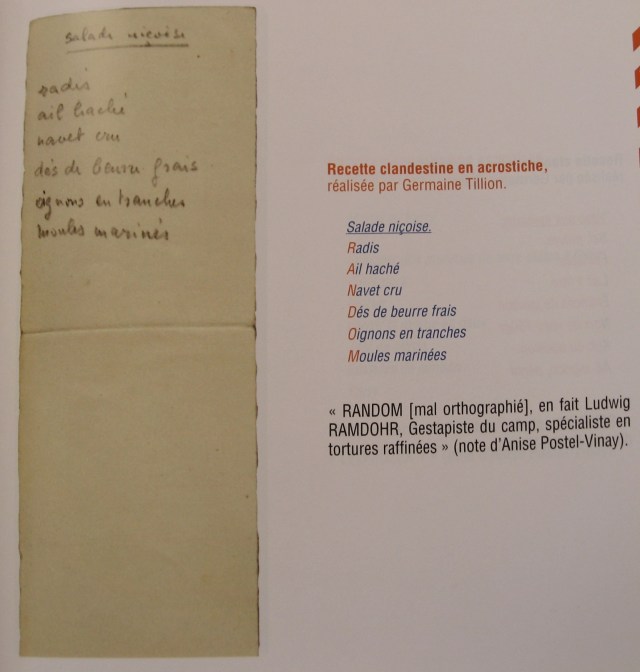 salade niçoise
radis
ail haché
navet cru
dés de beurre frais
oignons en tranches
moules marinés
Recette clandestine en acrostiche,
réalisée par Germaine Tillion.
Salade niçoise.
Radis
Ail haché
Navet cru
Dés de beurre frais
Oignons en tranches
Moules marinées
« RANDOM [mal orthographié], en fait Ludwig
RAMDOHR, Gestapiste du camp, spécialiste en
tortures raffinées » (note d'Anise Postel-Vinay).